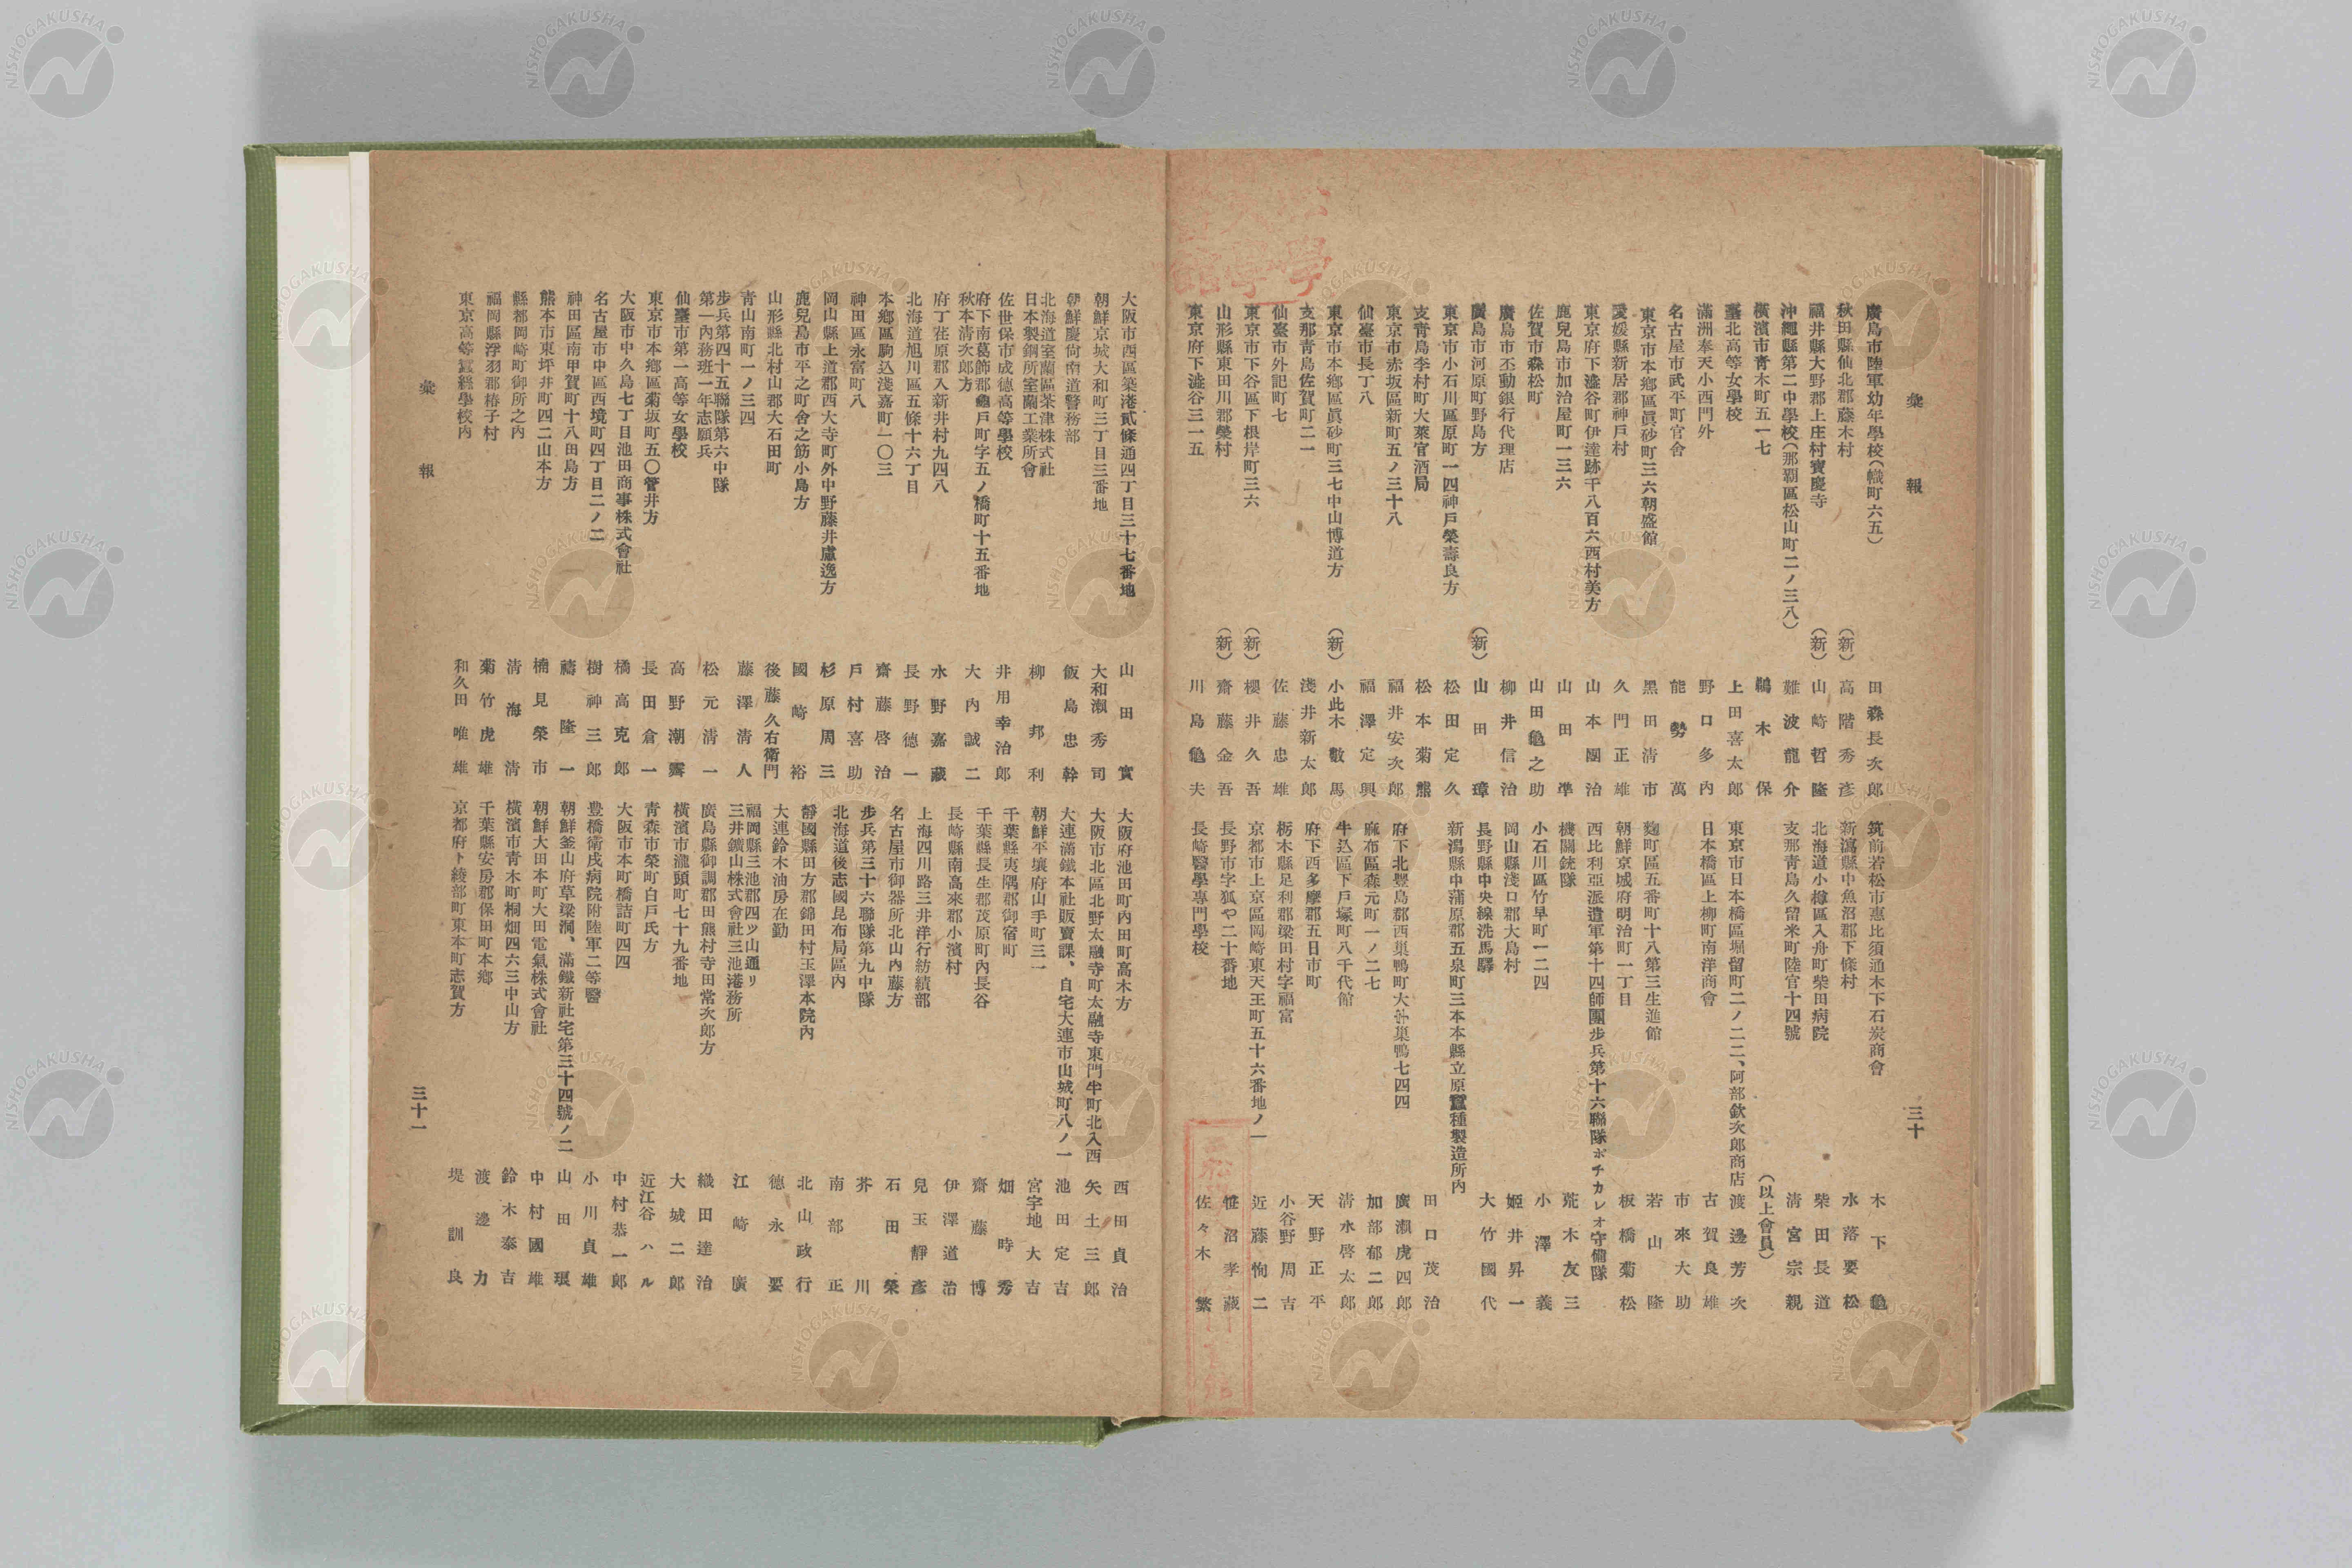 彙報
三十
廣島市陸軍幼年學校(幟町六五)
田森長次郎
秋田縣仙北郡藤木村
(新)高階秀彥
福井縣大野郡上庄村寶慶寺
(新)山崎哲隆
沖繩縣第二中學校(那覇區松山町二ノ三八)
難波龍介
橫濱市青木町五一七
鵜木保
臺北高等女學校
上田喜太郎
滿洲奉天小西門外
野口多內
名古屋市武平町官舍
能勢萬
東京市本鄉區眞砂町三六朝盛館
黑田清市
愛媛縣新居郡神戶村
久門正雄
東京府下澁谷町伊達跡千八百六西村美方
山本團治
鹿兒島市加治屋町一三六
山田準
佐賀市森松町
山田亀之助
廣島市丕動銀行代理店
柳井信治
廣島市河原町野島方
(新)山田璋
東京市小石川區原町一四神戶榮壽良方
松田定久
支青島李村町大萊官酒局
松本菊熊
東京市赤坂區新町五ノ三十八
福井安次郎
仙臺市長丁八
福澤定興
東京市本鄉區眞砂町三七中山博道方
(新)小此木數馬
支那青島佐賀町二一
淺井新太郎
仙臺市外記町七
佐藤忠雄
東京市下谷區下根岸町三六
(新)櫻井久吾
山形縣東田川郡榮村
(新)齋藤金吾
東京府下澁谷三一五
川島亀夫
筑前若松市惠比須通木下石炭商會
木下亀
新瀉縣中魚沼郡下條村
水落要松
北海道小樽區入舟町柴田病院
柴田長道
支那青島久留米町陸官十四號
清宮宗親
(以上會員)
東京市日本橋區堀留町二ノ二二、阿部欽次郎商店
渡邊芳次
日本橋區上柳町南洋商會
古賀良雄
市來大助
麴町區五番町十八第三生進館
若山隆
朝鮮京城府明治町一丁目
板橋菊松
西比利亞派遣軍第十四師團步兵第十六聯隊ポチカレオ守備隊
機關銃隊
荒木友三
小石川區竹早町一二四
小澤義
岡山縣淺口郡大島村
姬井昇一
長野縣中央線洗馬驛
大竹國代
新潟縣中蒲原郡五泉町三本本縣立原蠶種製造所內
田口茂治
府下北豐島郡西巢鴨町大字巢鴨七四四
廣瀨虎四郎
麻布區森元町一ノ二七
加部郁二郎
牛込區下戶塚町八千代館
清水啓太郎
府下西多摩郡五日市町
天野正平
栃木縣足利郡梁田村字福富
小谷野周吉
京都市上京區岡崎東天王町五十六番地ノ一
近藤恂二
長野市字狐や二十番地
笹沼孝藏
長崎醫學專門學校
佐々木繁
大阪市西區築港貳條通四丁目三十七番地
山田實
朝鮮京城大和町三丁目三番地
大和瀨秀司
朝鮮慶尙南道警務部
飯島忠幹
北海道室蘭區茶津株式社
日本製鋼所室蘭工業所會
柳邦利
佐世保市成德高等學校
井用幸治郎
府下南葛飾郡龜戶町字五ノ橋町十五番地
秋本清次郎方
大內誠二
府丁荏原郡入新井村九四八
水野嘉藏
北海道旭川區五條十六丁目
長野德一
本鄉區駒込淺嘉町一〇三
齋藤啓治
神田區永富町八
戶村喜助
岡山縣上道郡西大寺町外中野藤井盧逸方
杉原周三
鹿兒島市平之町舍之筋小島方
國崎裕
山形縣北村山郡大石田町
後藤久右衛門
青山南町一ノ三四
藤澤清人
步兵第四十五聯隊第六中隊
第一內務班一年志願兵
松元清一
仙臺市第一高等女學校
高野潮霽
東京市本鄉區菊坂町五〇菅井方
長田倉一
大阪市中久島七丁目池田商事株式會社
橘高克郎
名古屋市中區西境町四丁目二ノ二
樹神三郎
神田區南甲賀町十八田島方
禱隆一
熊本市東坪井町四二山本方
楠見榮市
縣都岡崎町御所之內
清海清
福岡縣浮羽郡椿子村
菊竹虎雄
東京高等蠶絲學校內
和久田唯雄
大阪府池田町內田町高木方
西田貞治
大阪市北區北野太融寺町太融寺東門半町北入西
矢土三郎
大連滿鐵本社販賣課、自宅大連市山城町八ノ一
池田定吉
朝鮮平壤府山手町三一
宮宇地大吉
千葉縣夷隅郡御宿町
畑時秀
千葉縣長生郡茂原町內長谷
齋藤博
長崎縣南高來郡小濱村
伊澤道治
上海四川路三井洋行紡績部
兒玉靜彥
名古屋市御器所北山內藤方
石田榮
步兵第三十六聯隊第九中隊
芥川
北海道後志國昆布局區內
南部正
靜國縣田方郡錦田村玉澤本院內
北山政行
大連鈴木油房在勤
德永要
福岡縣三池郡四ツ山通リ
三井鑛山株式會社三池港務所
江崎廣
廣島縣御調郡田熊村寺田常次郎方
織田達治
橫濱市瀧頭町七十九番地
大城二郎
青森市榮町白戶氏方
近江谷ハル
大阪市本町橋詰町四四
中村恭一郎
豊橋衛戍病院附陸軍二等醫
小川貞雄
朝鮮釜山府草梁洞、滿鐵新社宅第三十四號ノ二
山田環
朝鮮大田本町大田電氣株式會社
中村國雄
橫濱市青木町桐畑四六三中山方
鈴木泰吉
千葉縣安房郡保田町本鄉
渡邊力
京都府下綾部町東本町志賀方
堤訓良
彙報
三十一